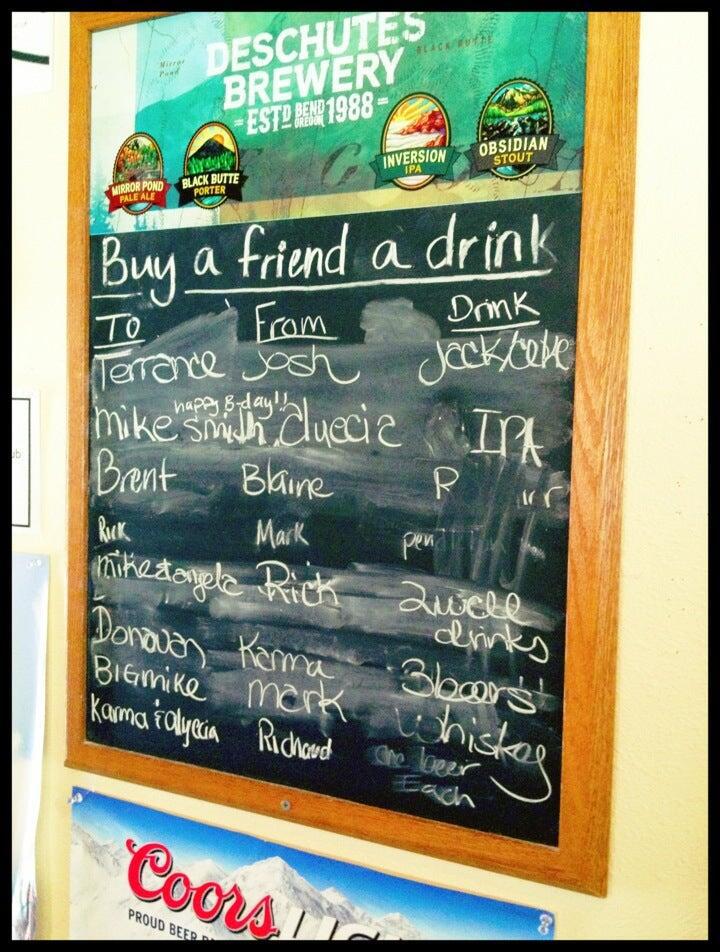 DESCHUTES
BREWERY
ESTD BEND OREGON 1988
Mirror Pond
BLACK BUTTE
MIRROR POND
PALE ALE
BLACK BUTTE
PORTER
INVERSION
IPA
OBSIDIAN
STOUT
Buy a friend a drink
To From Drink
Terrance Josh Jack/coke
happy B-day!!
mike smith IPA
Brent Blaine R
Rick Mark
mike & angela Rick 2 well
drinks
Donovan Karma 3 beers
BIG mike mark Whiskey
Karma & alyecia Richard one beer
Each
Coors
PROUD BEER